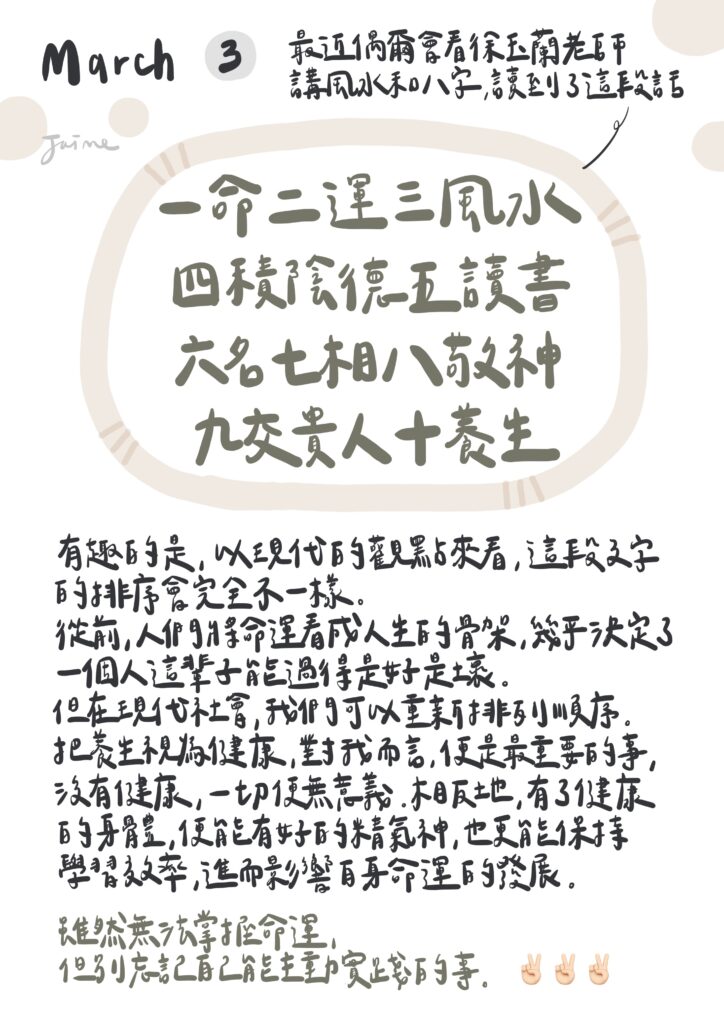 March 3
最近偶爾會看徐玉蘭老師
講風水和八字,讀到了這段話
Jaime
一命二運三風水
四積陰德五讀書
六名七相八敬神
九交貴人十養生
有趣的是,以現代的觀點來看,這段文字
的排序會完全不一樣。
從前,人們將命運看成人生的骨架,幾乎決定了
一個人這輩子能過得是好是壞。
但在現代社會,我們可以重新排列順序.
把養生視為健康,對我而言,便是最重要的事,
沒有健康,一切便無意義.相反地,有了健康
的身體,便能有好的精氣神,也更能保持
學習效率,進而影響自身命運的發展。
雖然無法掌握命運,
但別忘記自己能主動實踐的事. ✌🏻✌🏻✌🏻